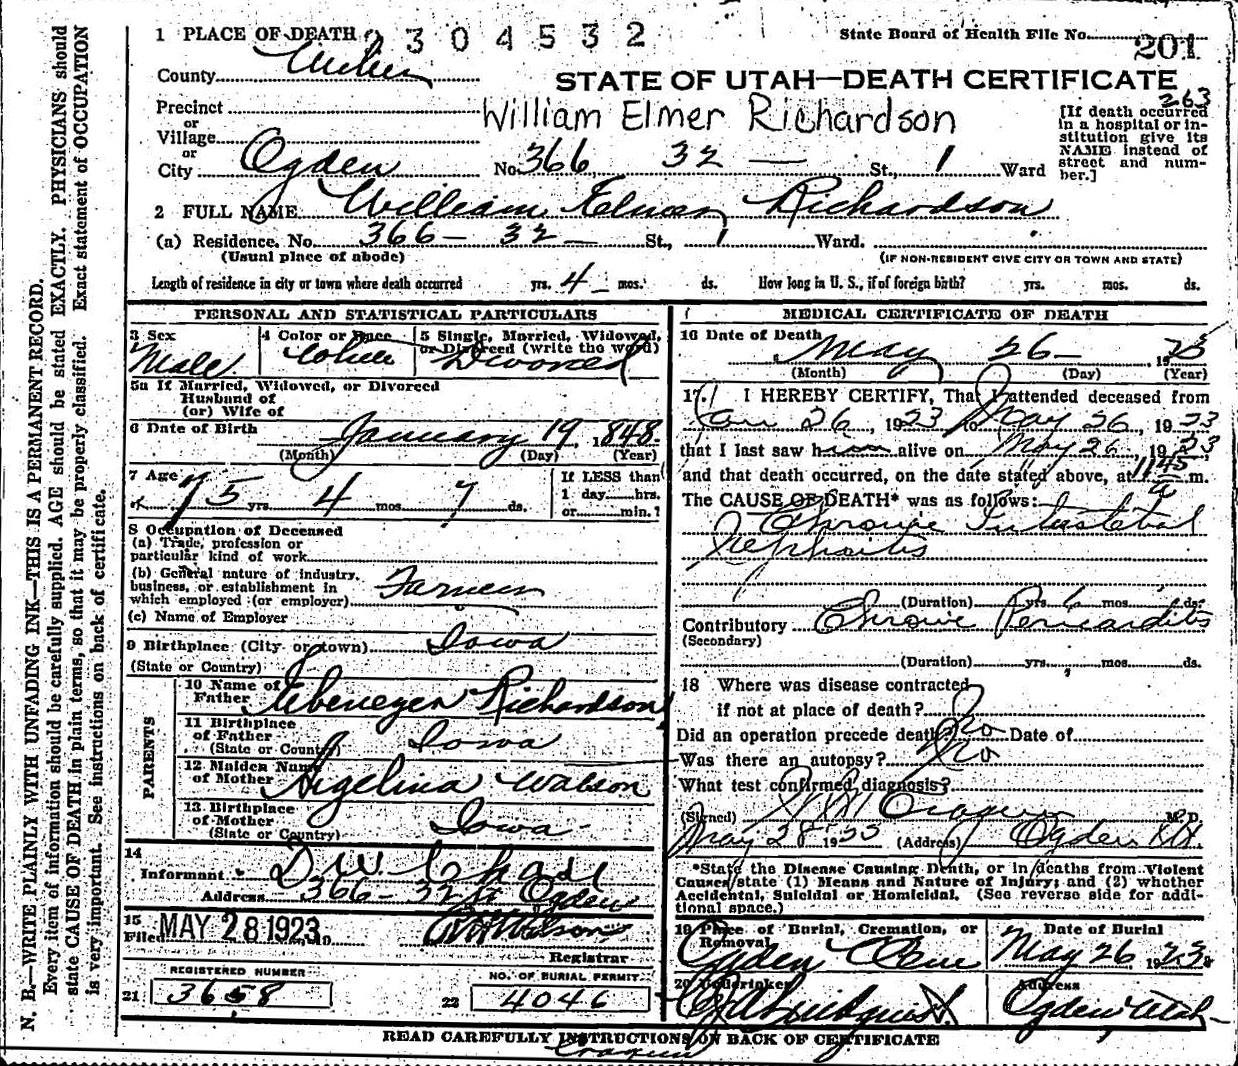 1 PLACE OF DEATH 2304532 State Board of Health File No. 201
County Weber
STATE OF UTAH—DEATH CERTIFICATE
263
Precinct
William Elmer Richardson
or
Village
or
City Ogden No. 366 32 — St., 1 Ward
[If death occurred
in a hospital or in-
stitution give its
NAME instead of
street and num-
ber.]
2 FULL NAME William Elmer Richardson
(a) Residence. No. 366 — 32 — St., 1 Ward.
(Usual place of abode) (IF NON-RESIDENT GIVE CITY OR TOWN AND STATE)
Length of residence in city or town where death occurred yrs. 4 mos. ds. How long in U. S., if of foreign birth? yrs. mos. ds.
PERSONAL AND STATISTICAL PARTICULARS
3 Sex
Male
4 Color or Race
White
5 Single, Married, Widowed,
or Divorced (write the word)
Divorced
5a If Married, Widowed, or Divorced
Husband of
(or) Wife of
6 Date of Birth January 19, 1848
(Month) (Day) (Year)
7 Age 75 yrs. 4 mos. 7 ds.
If LESS than
1 day hrs.
or min.?
8 Occupation of Deceased
(a) Trade, profession or
particular kind of work
(b) General nature of industry,
business, or establishment in
which employed (or employer) Farmer
(c) Name of Employer
9 Birthplace (City or town) Iowa
(State or Country)
PARENTS
10 Name of
Father Ebenezer Richardson
11 Birthplace
of Father Iowa
(State or Country)
12 Maiden Name
of Mother Angelina Watson
13 Birthplace
of Mother Iowa
(State or Country)
14
Informant D. W.
Address 366 — 32 St Ogden
15
Filed MAY 28 1923
Wilson
Registrar
REGISTERED NUMBER
21 3658
NO. OF BURIAL PERMIT
22 4046
MEDICAL CERTIFICATE OF DEATH
16 Date of Death May 26 — 1923
(Month) (Day) (Year)
17. I HEREBY CERTIFY, That I attended deceased from
Jan 26, 1923 to May 26, 1923
that I last saw him alive on May 26, 1923,
and that death occurred, on the date stated above, at 11 45 a m.
The CAUSE OF DEATH* was as follows:
Chronic Interstitial
Nephritis
(Duration) yrs. 6 mos. ds.
Contributory Chronic Pericarditis
(Secondary)
(Duration) yrs. mos. ds.
18 Where was disease contracted
if not at place of death?
Did an operation precede death? No Date of
Was there an autopsy? No
What test confirmed diagnosis?
(Signed) Cragun M. D.
May 28 1923 (Address) Ogden Ut.
*State the Disease Causing Death, or in deaths from Violent
Causes state (1) Means and Nature of Injury; and (2) whether
Accidental, Suicidal or Homicidal. (See reverse side for addi-
tional space.)
19 Place of Burial, Cremation, or
Removal
Ogden
Date of Burial
May 26 1923
20 Undertaker
Lindquist
Address
Ogden Utah
READ CAREFULLY INSTRUCTIONS ON BACK OF CERTIFICATE
Cragun
N. B.—WRITE PLAINLY WITH UNFADING INK—THIS IS A PERMANENT RECORD.
Every item of information should be carefully supplied. AGE should be stated EXACTLY. PHYSICIANS should
state CAUSE OF DEATH in plain terms, so that it may be properly classified. Exact statement of OCCUPATION
is very important. See instructions on back of certificate.